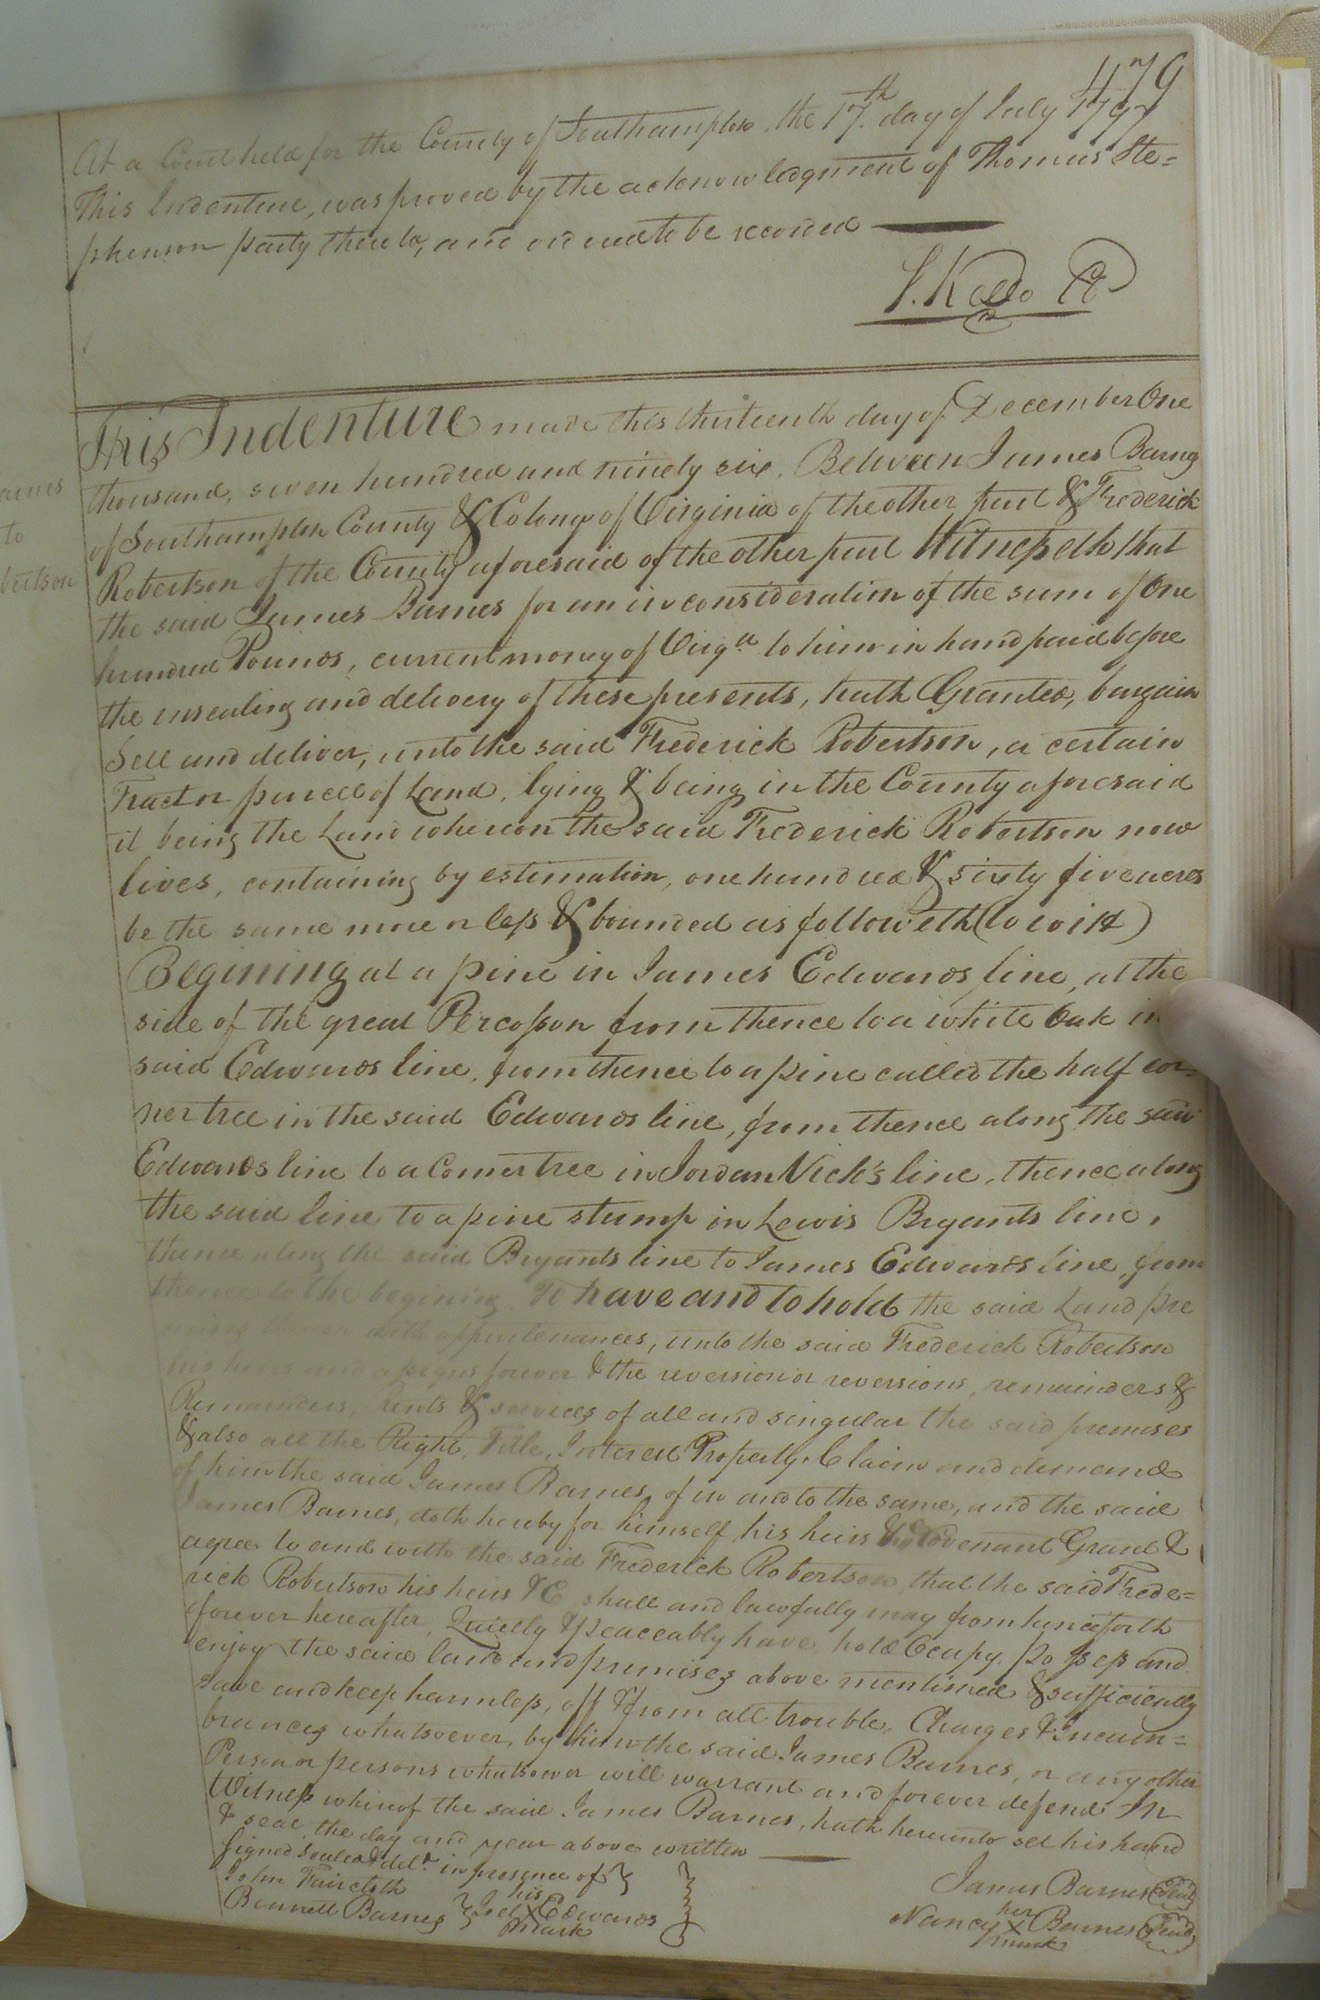 479
At a Court held for the County of Southampton, the 17th day of July 1797
This Indenture, was proved by the acknowledgment of Thomas Ste=
phenson party thereto, and ordered to be recorded
S. Kello Ct
This Indenture made this thirteenth day of December One
thousand, seven hundred and ninety six. Between James Barns
of Southampton County & Colony of Virginia of the other part & Frederick
arnes
to
bertson
Robertson of the County aforesaid of the other part Witnesseth that
the said James Barnes for an in consideration of the sum of One
hundred Pounds, current money of Virga to him in hand paid before
the ensealing and delivery of these presents, hath Granted, bargain
Sell and deliver, unto the said Frederick Robertson, a certain
Tract or parcel of Land, lying & being in the County aforesaid
it being the Land whereon the said Frederick Robertson now
lives, containing by estimation, one hundred & sixty five acres
be the same more or less & bounded as followeth (to wit)
Begining at a pine in James Edwards line, at the
side of the great Percosson from thence to a white Oak in
said Edwards line, from thence to a pine called the half cor=
ner tree in the said Edwards line, from thence along the said
Edwards line to a Corner tree in Jordan Vick's line, thence along
the said line to a pine stump in Lewis Bryants line,
thence along the said Bryants line to James Edwards line, from
thence to the begining To have and to hold the said Land pre
mises with appurtenances, unto the said Frederick Robertson
his heirs and assigns forever & the reversion or reversions, remainders &
Remainders, Rents & services of all and singular the said premises
& also all the Right, Title, Interest Property, Claim and demand
of him the said James Barnes, of in and to the same, and the said
James Barnes, doth hereby for himself his heirs &c Covenant Grant &
agree to and with the said Frederick Robertson that the said Frede=
rick Robertson his heirs &C shall and lawfully may from henceforth
forever hereafter, Quietly & peaceably have hold Ocupy Possess and
enjoy the said land and premises above mentioned & sufficiently
save and keep harmless, off & from all trouble, Charges & Incum=
brances whatsoever, by him the said James Barnes, or any other
Person or persons whatsoever will warrant and forever defend In
Witness whereof the said James Barnes, hath hereunto set his hand
& seal, the day and year above written
Signed Sealed & deld in presence of
John Faircloth
Bennett Barnes
his
Edwards
mark
James Barnes Seal
her
Nancy X Barnes Seal
mark